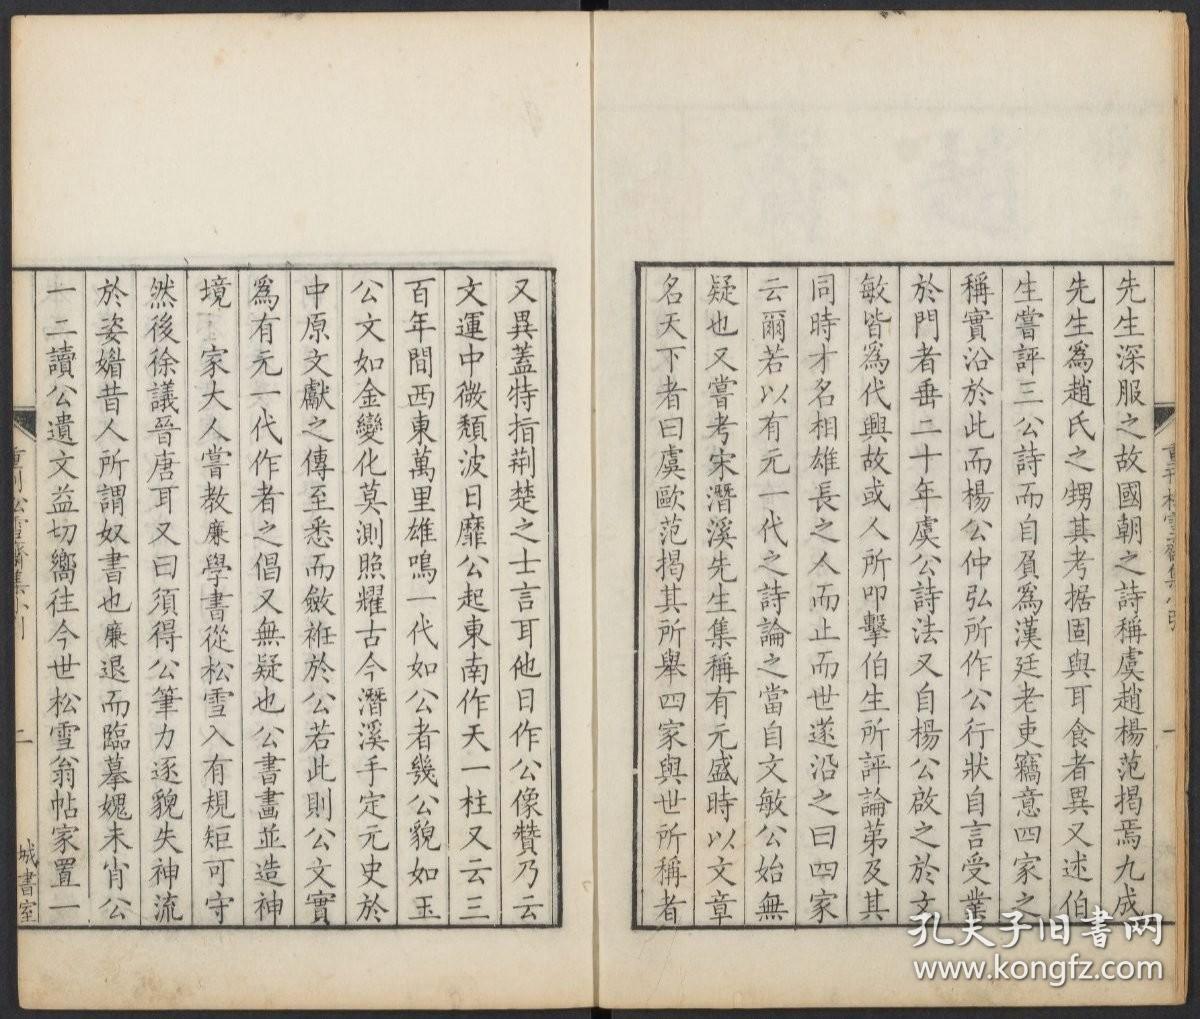 先生深服之故國朝之詩稱虞趙楊范揭焉九成
先生爲趙氏之甥其考据固與耳食者異又述伯
生嘗評三公詩而自負爲漢廷老吏竊意四家之
稱實沿於此而楊公仲弘所作公行狀自言受業
於門者垂二十年虞公詩法又自楊公啟之於文
敏皆爲代興故或人所叩擊伯生所評論第及其
同時才名相雄長之人而止而世遂沿之曰四家
云爾若以有元一代之詩論之當自文敏公始無
疑也又嘗考宋潛溪先生集稱有元盛時以文章
名天下者曰虞歐范揭其所舉四家與世所稱者
又異蓋特指荆楚之士言耳他日作公像贊乃云
文運中微頹波日靡公起東南作天一柱又云三
百年間西東萬里雄鳴一代如公者幾公貌如玉
公文如金變化莫測照耀古今潛溪手定元史於
中原文獻之傳至悉而斂袵於公若此則公文實
爲有元一代作者之倡又無疑也公書畫並造神
境 家大人嘗教廉學書從松雪入有規矩可守
然後徐議晉唐耳又曰須得公筆力逐貌失神流
於姿媚昔人所謂奴書也廉退而臨摹媿未肖公
一二讀公遺文益切嚮往今世松雪翁帖家置一
二
城書室
孔夫子旧书网
www.kongfz.com